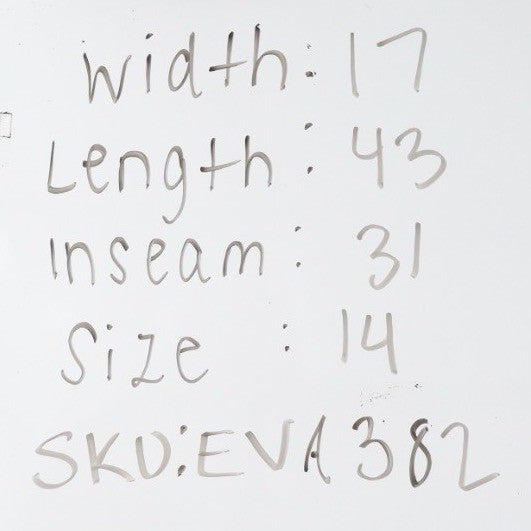 Width: 17
Length: 43
Inseam: 31
Size: 14
SKU:EVA382